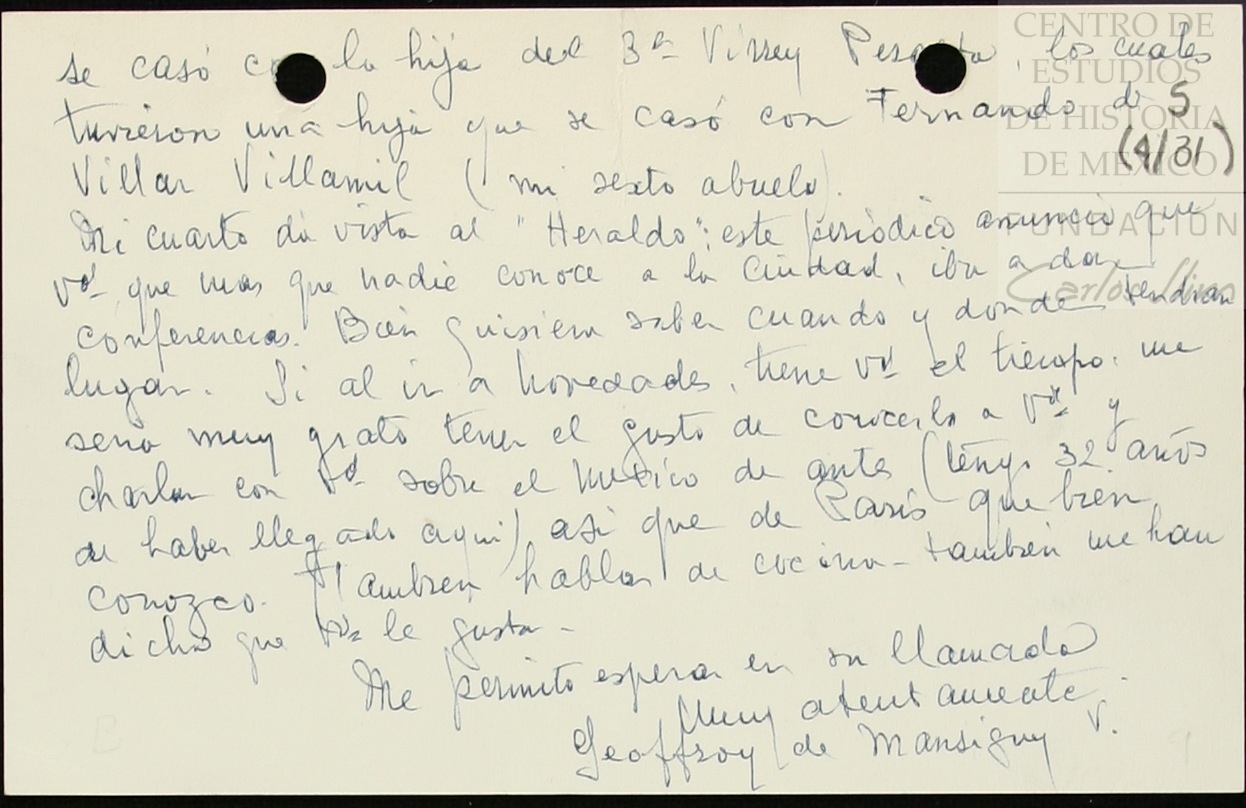 se casó con la hija del 3er Virrey Peralta, los cuales
tuvieron una hija que se casó con Fernando de
Villar Villamil (mi sexto abuelo).
Mi cuarto dá vista al "Heraldo"; este periódico anunció que
Vd que mas que nadie conoce a la Ciudad, iba a dar
conferencias. Bien quisiera saber cuando y donde tendran
lugar. Si al ir a Novedades, tiene Vd el tiempo, me
seria muy grato tener el gusto de conocerlo a Vd y
charlar con Vd sobre el Mexico de antes (tengo 32 años
de haber llegado aqui) asi que de Paris que bien
conozco. Tambien hablar de cocina - también me han
dicho que le gusta -
Me permito esperar en su llamada
Muy atentamente
Geoffroy de Mansigny V.
S
(4/31)
CENTRO DE
ESTUDIOS
DE HISTORIA
DE MÉXICO
FUNDACIÓN
Carlos Slim